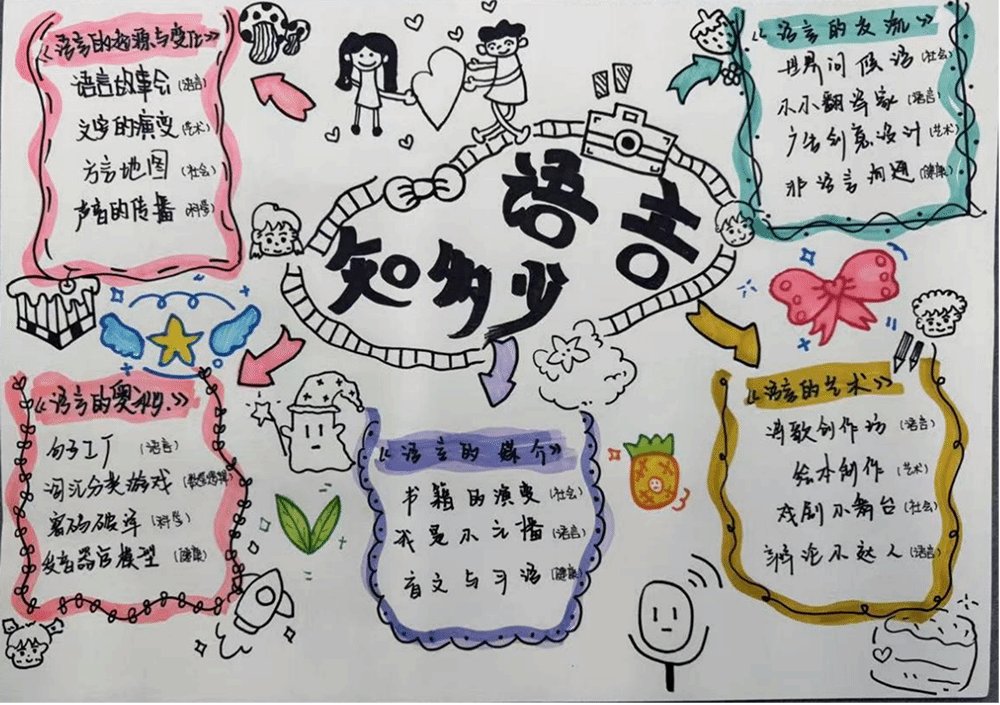 语言
知多少
《语言的起源与变化》
语言的故会(语言)
文字的演变(艺术)
方言地图(社会)
声音的传播(科学)
《语言的交流》
世界问候语(社会)
小小翻译家(语言)
广告创意设计(艺术)
非语言沟通(健康)
《语言的奥秘》
句子工厂(语言)
词汇分类游戏
密码破译(科学)
发音器官模型(健康)
《语言的媒介》
书籍的演变(社会)
我是小主播(语言)
盲文与手语(健康)
《语言的艺术》
诗歌创作坊(语言)
绘本创作(艺术)
戏剧小舞台(社会)
辩论小达人(语言)